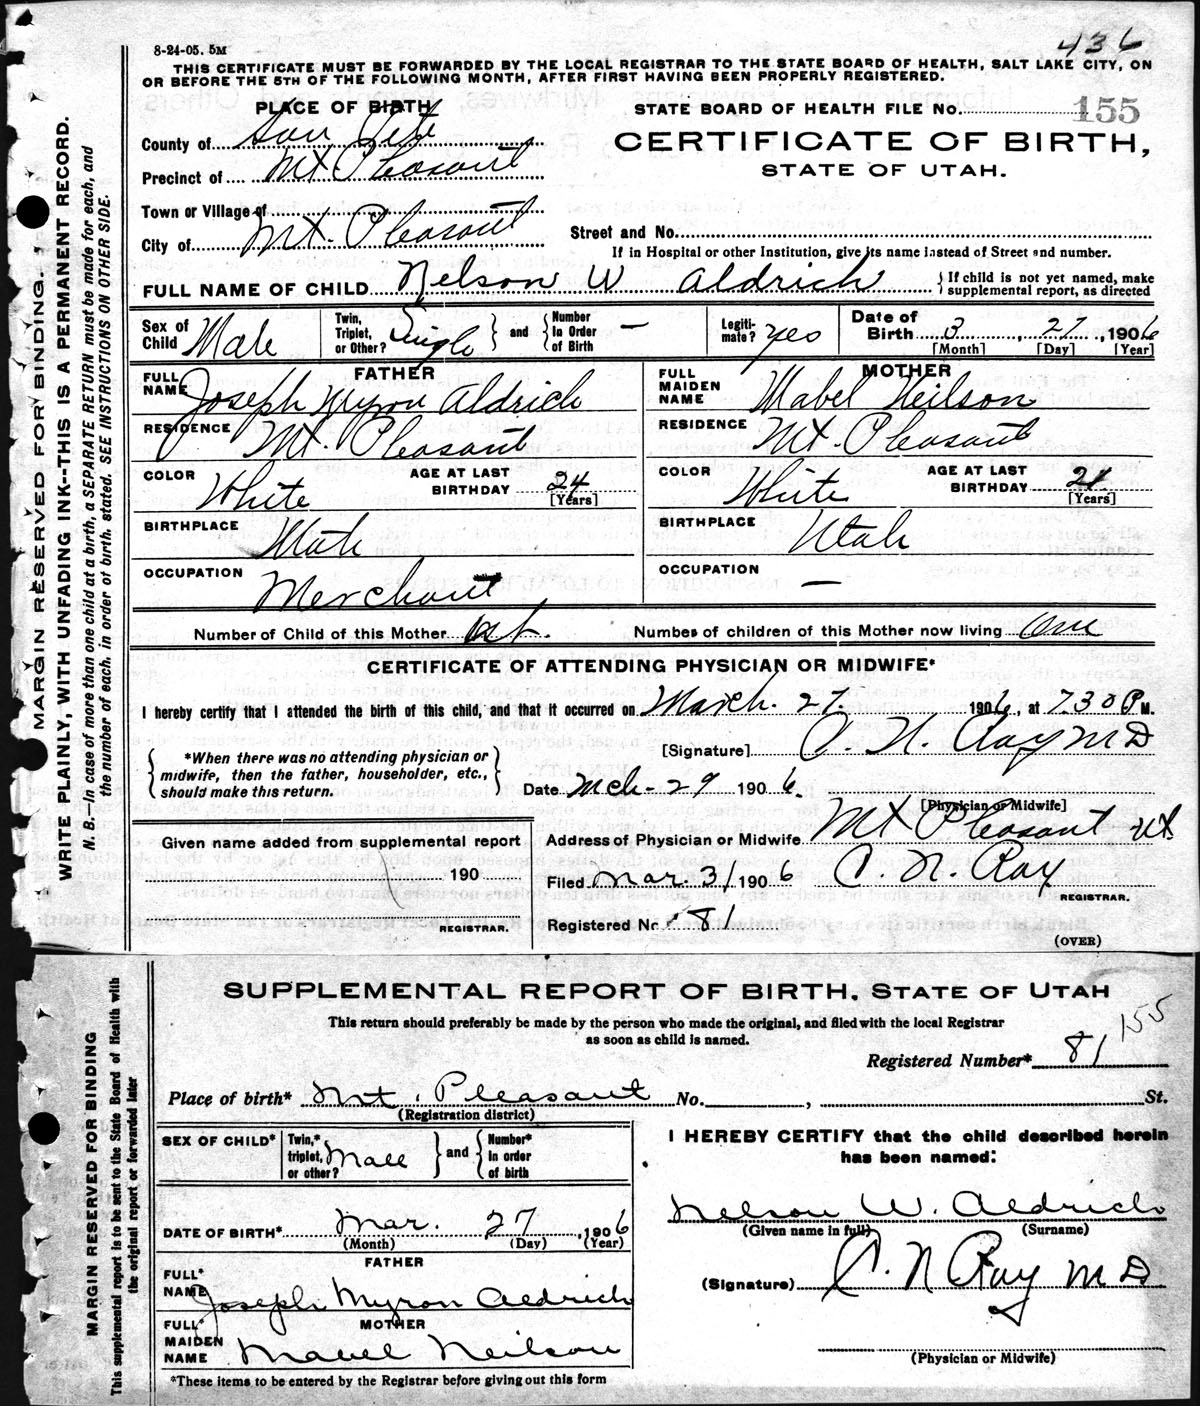 8-24-05. 5M
436
THIS CERTIFICATE MUST BE FORWARDED BY THE LOCAL REGISTRAR TO THE STATE BOARD OF HEALTH, SALT LAKE CITY, ON
OR BEFORE THE 5TH OF THE FOLLOWING MONTH, AFTER FIRST HAVING BEEN PROPERLY REGISTERED.
PLACE OF BIRTH
STATE BOARD OF HEALTH FILE NO. 155
County of San Pete
CERTIFICATE OF BIRTH,
STATE OF UTAH.
Precinct of Mt Pleasant
Town or Village of
City of Mt. Pleasant
Street and No.
If in Hospital or other Institution, give its name instead of Street and number.
FULL NAME OF CHILD Nelson W Aldrich { If child is not yet named, make supplemental report, as directed
Sex of Child Male
Twin, Triplet, or Other? Single } and { Number In Order of Birth —
Legiti- mate? yes
Date of Birth 3, 27, 1906
[Month] [Day] [Year]
FATHER
FULL NAME Joseph Myron Aldrich
RESIDENCE Mt. Pleasant
COLOR White
AGE AT LAST BIRTHDAY 24
[Years]
BIRTHPLACE Utah
OCCUPATION Merchant
MOTHER
FULL MAIDEN NAME Mabel Neilson
RESIDENCE Mt. Pleasant
COLOR White
AGE AT LAST BIRTHDAY 21
[Years]
BIRTHPLACE Utah
OCCUPATION —
Number of Child of this Mother 1st. Number of children of this Mother now living One
CERTIFICATE OF ATTENDING PHYSICIAN OR MIDWIFE*
I hereby certify that I attended the birth of this child, and that it occurred on March. 27. 1906, at 7.30 P. M.
{ *When there was no attending physician or midwife, then the father, householder, etc., should make this return. }
[Signature] O. N. Ray M D
Date Mch-29 1906.
[Physician or Midwife]
Given name added from supplemental report
190
REGISTRAR.
Address of Physician or Midwife Mt Pleasant Ut
Filed Mar 31 1906 O. N. Ray
REGISTRAR.
Registered No. 81
(OVER)
MARGIN RESERVED FOR BINDING.
WRITE PLAINLY, WITH UNFADING INK--THIS IS A PERMANENT RECORD.
N. B.—In case of more than one child at a birth, a SEPARATE RETURN must be made for each, and
the number of each, in order of birth, stated. SEE INSTRUCTIONS ON OTHER SIDE.
SUPPLEMENTAL REPORT OF BIRTH, STATE OF UTAH
This return should preferably be made by the person who made the original, and filed with the local Registrar
as soon as child is named.
155
Registered Number* 81
Place of birth* Mt. Pleasant No. , St.
(Registration district)
SEX OF CHILD* Twin,* triplet, or other? Male } and { Number* in order of birth
DATE OF BIRTH* Mar. 27, 1906
(Month) (Day) (Year)
FATHER
FULL* NAME Joseph Myron Aldrich
MOTHER
FULL* MAIDEN NAME Mabel Neilson
*These items to be entered by the Registrar before giving out this form
I HEREBY CERTIFY that the child described herein
has been named:
Nelson W. Aldrich
(Given name in full) (Surname)
(Signature) O. N Ray M D
(Physician or Midwife)
MARGIN RESERVED FOR BINDING
This supplemental report is to be sent to the State Board of Health with
the original report or forwarded later